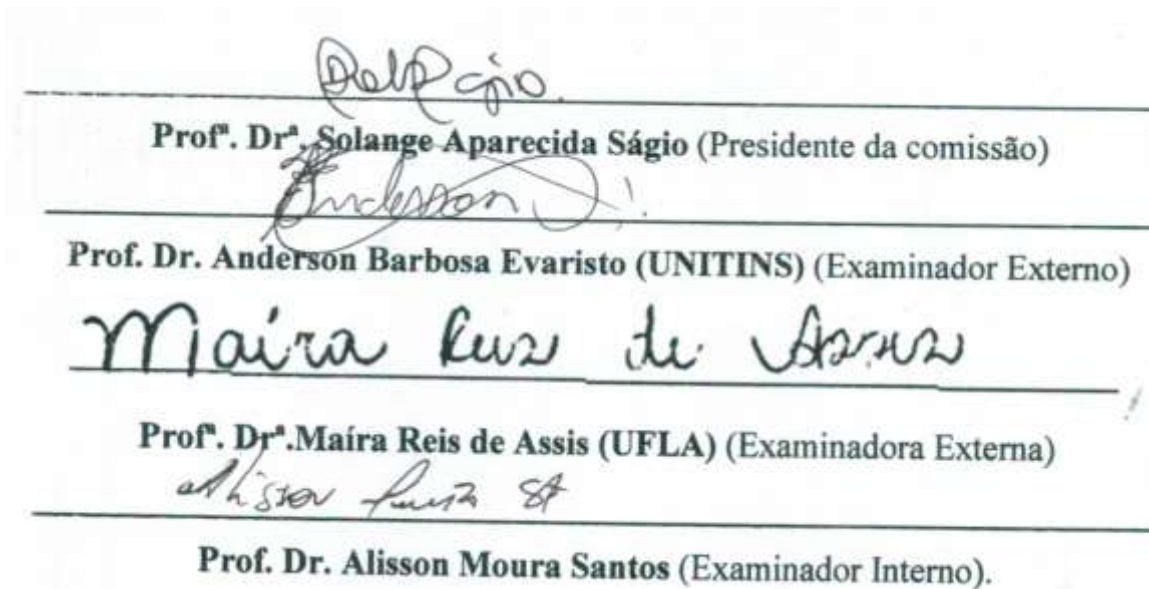 Profª. Drª. Solange Aparecida Ságio (Presidente da comissão)
Anderson
Prof. Dr. Anderson Barbosa Evaristo (UNITINS) (Examinador Externo)
Maíra Reis de Assis
Profª. Drª.Maíra Reis de Assis (UFLA) (Examinadora Externa)
Alisson
Prof. Dr. Alisson Moura Santos (Examinador Interno).